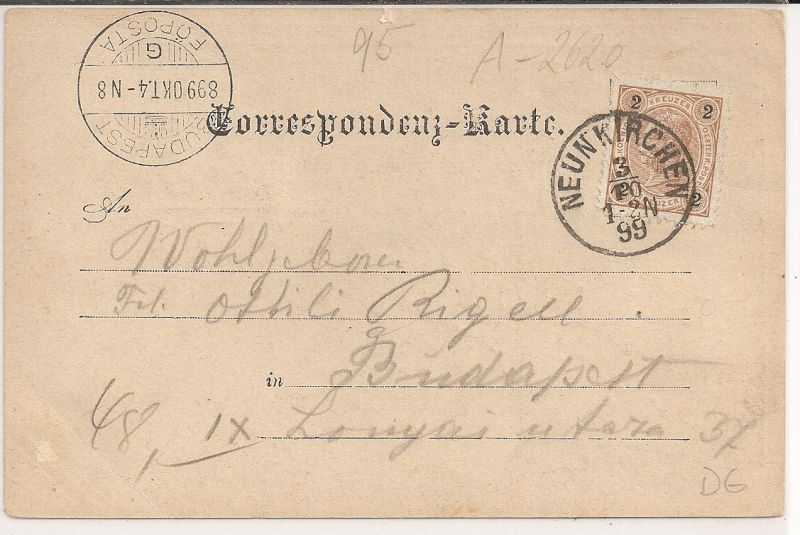 95
A-2620
BUDAPEST
899 OKT.4-N8
G
FŐPOSTA
Correspondenz-Karte.
2 KREUZER 2
2
NEUNKIRCHEN
3/10
1-2N
99
An
Wohlgeboren
Frl. Ottili Rigell
in Budapest
48, IX Lonyai utcza 37
DG